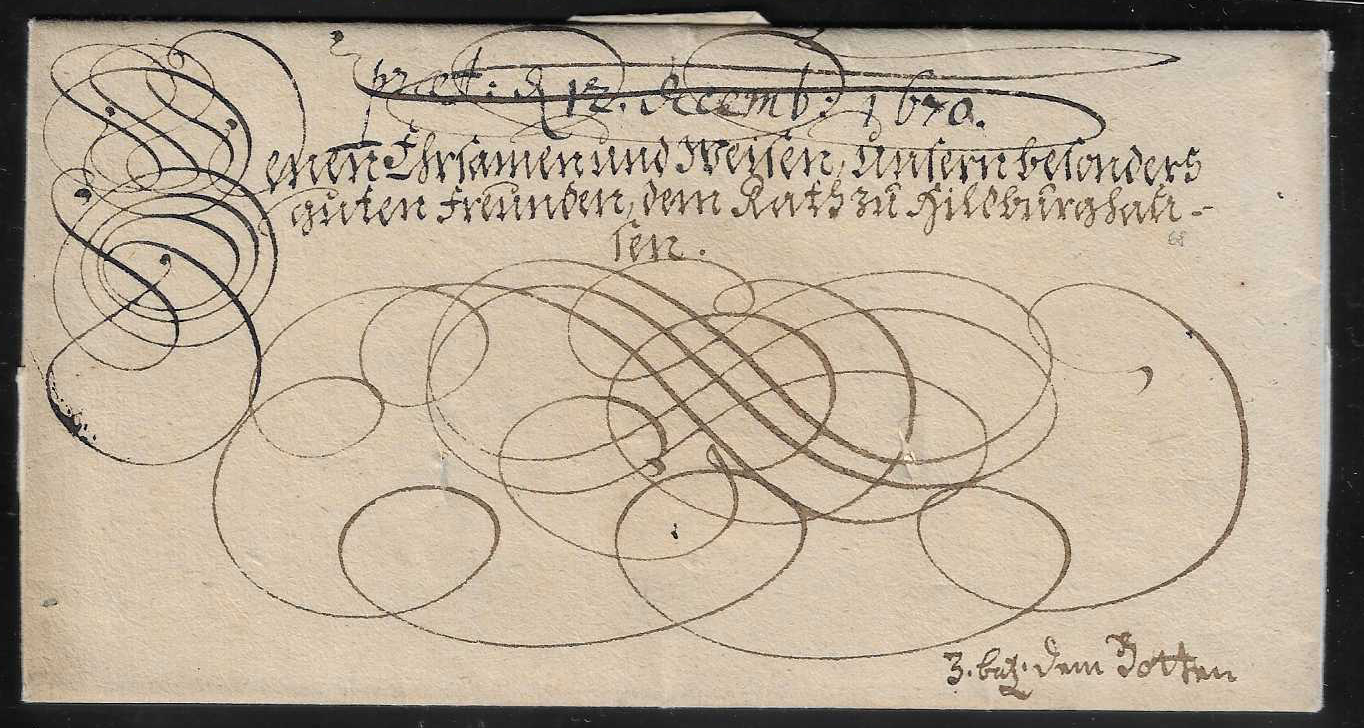 præs: d 12. decemb: 1670.
Denen Ehrsamen und Weisen, Unsern besonders
guten Freunden, dem Rath zu Hildburghau-
sen.
68
3. batz: dem Botten